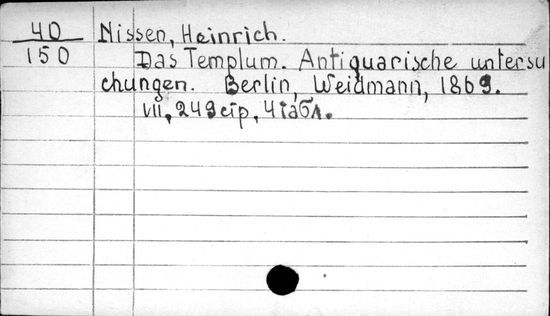 40 Nissen, Heinrich.
150 Das Templum. Antiquarische untersu
chungen. Berlin, Weidmann, 1869.
VII, 249 стр, 4 табл.